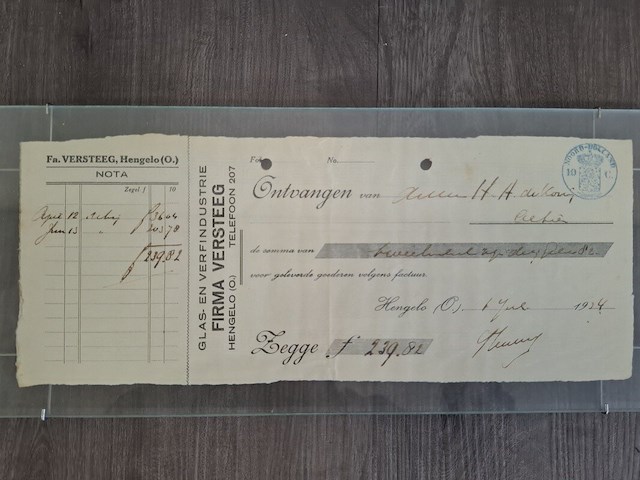 Fa. VERSTEEG, Hengelo (O.)
NOTA
Zegel f 10
April 12 f 36.04
Juni 13 " 203.78
f 239.82
GLAS- EN VERFINDUSTRIE
FIRMA VERSTEEG
HENGELO (O.) TELEFOON 207
Fol. No.
Ontvangen van H. A. de
de somma van 82
voor geleverde goederen volgens factuur.
Hengelo (O.) 6 Juli 1924
Zegge f 239.82
NOORD-HOLLAND
10 C.